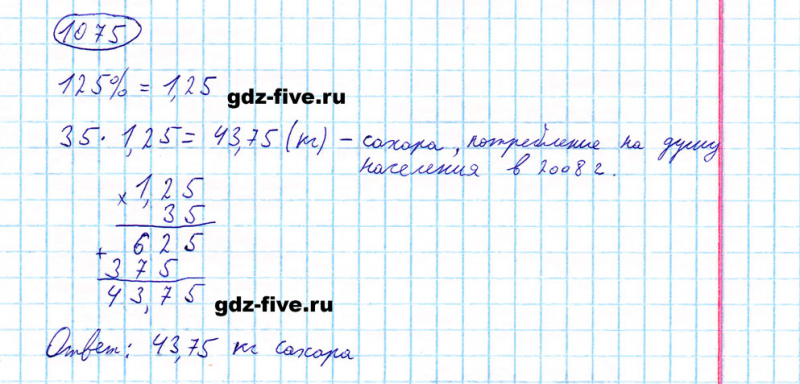 1075
125% = 1,25
gdz-five.ru
35 · 1,25 = 43,75 (кг) – сахара, потребление на душу
населения в 2008 г.
× 1,25
35
+ 625
375
43,75
gdz-five.ru
Ответ: 43,75 кг сахара